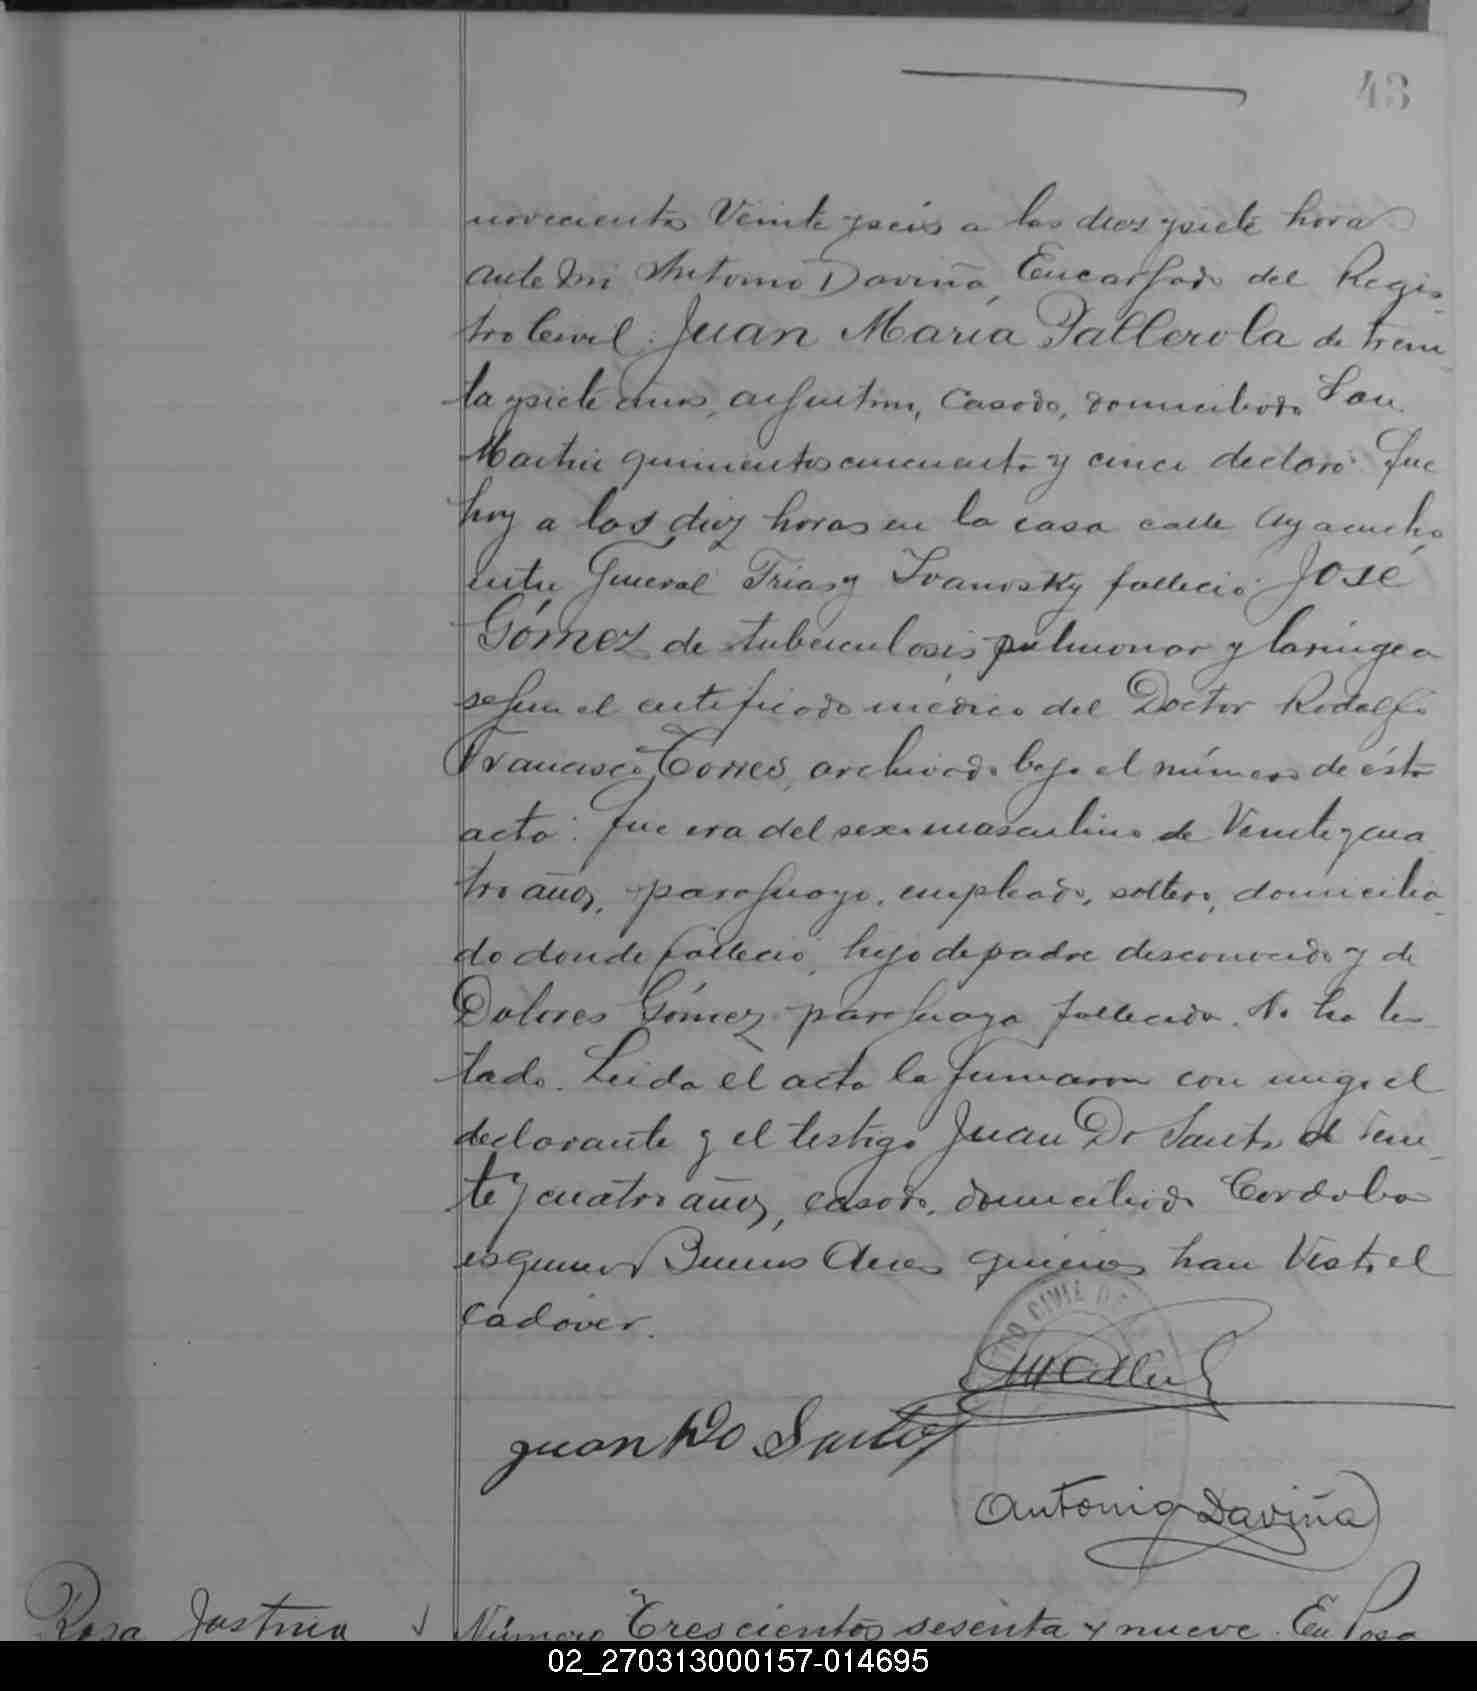 43
novecientos Veinte y seis a las diez y siete horas
ante mi Antonio Daviña, Encargado del Regis-
tro Civil: Juan María Pallerola de trein-
ta y siete años, argentino, casado, domiciliado San
Martin quinientos cincuenta y cinco declaró: Que
hoy a las diez horas en la casa calle Ayacucho
entre General Frias y Ivanosky falleció: José
Gómez de tuberculosis pulmonar y laringea
segun el certificado médico del Doctor Rodolfo
Francisco Torres, archivado bajo el número de ésta
acta: Que era del sexo masculino de Veinte y cua
tro años, paraguayo, empleado, soltero, domicilia-
do donde falleció, hijo de padre desconocido y de
Dolores Gómez paraguaya fallecida. No ha tes
tado. Leida el acta la firmaron con migo el
declarante y el testigo Juan Do Santo de Vein-
te y cuatro años, casado, domiciliado Cordoba
esquina Buenos Aires quienes han Visto el
cadáver.
CIVIL DE
Juan Do Santos
Antonio Daviña
Rosa Justina
Número Trescientos sesenta y nueve. En Posa
02_270313000157-014695